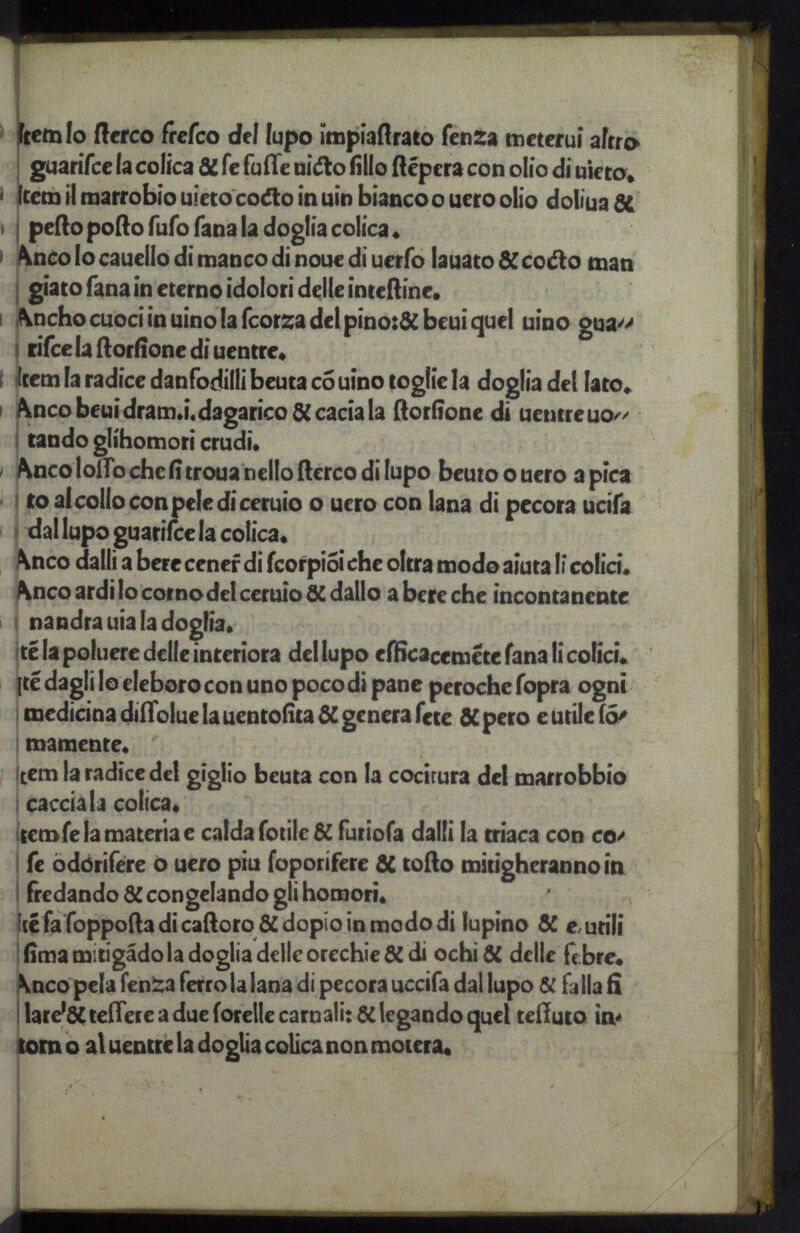 Item lo ſterco freſco del lupo impiaſtrato ſenza meterui altro
guariſce la colica & ſe fuſſe uicto fillo ſtēpera con olio di uieto.
Item il marrobio uieto cocto in uin bianco o uero olio doliua &
peſto poſto ſuſo ſana la doglia colica.
Anco lo cauello di manco di noue di uerſo lauato & cocto man
giato ſana in eterno idolori delle inteſtine.
Ancho cuoci in uino la ſcorza del pino: & beui quel uino gua⸗
riſce la ſtorſione di uentre.
Item la radice danfodilli beuta cō uino toglie la doglia del lato.
Anco beui dram.i. dagarico & cacia la ſtorſione di uentre uo⸗
tando glihomori crudi.
Anco loſſo che ſi troua nello ſterco di lupo beuto o uero apica
to al collo con pele di ceruio o uero con lana di pecora uciſa
dal lupo guariſce la colica.
Anco dalli a bere cener̄ di ſcorpiōi che oltra modo aiuta li colici.
Anco ardi lo corno del ceruio & dallo a bere che incontanente
nandra uia la doglia.
tē la poluere delle interiora del lupo efficacemēte ſana li colici.
Itē dagli lo eleboro con uno poco di pane peroche ſopra ogni
medicina diſſolue la uentoſita & genera ſete & pero e utile ſō⸗
mamente.
tem la radice del giglio beuta con la cocitura del marrobbio
caccia la colica.
tem ſe la materia e calda ſotile & furioſa dalli la triaca con co⸗
ſe odorifere o uero piu ſoporifere & toſto mitigheranno in
fredando & congelando gli homori.
Itē fa ſoppoſta di caſtoro & dopio in modo di lupino & e utili
ſima mitigādo la doglia delle orechie & di ochi & delle febre.
Anco pela ſenza ferro la lana di pecora ucciſa dal lupo & falla fi
lare & teſſere a due ſorelle carnali: & legando quel teſſuto in⸗
torno al uentre la doglia colica non motera.